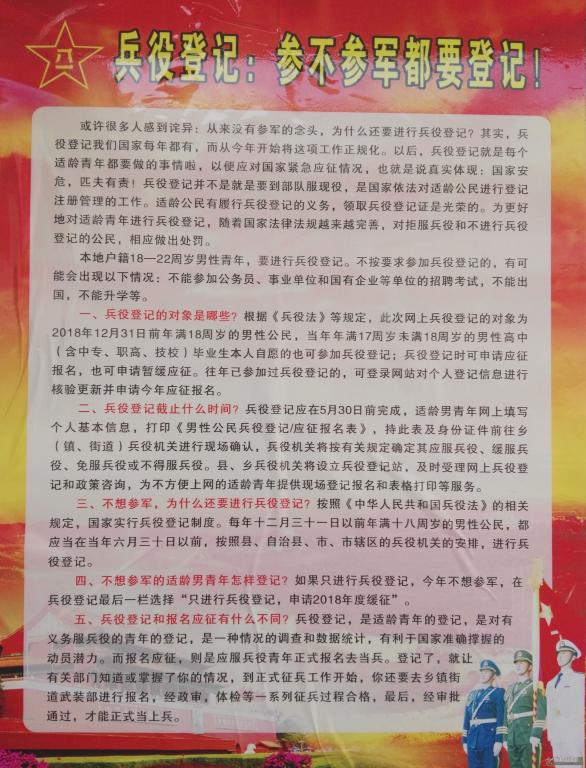 兵役登记：参不参军都要登记！
或许很多人感到诧异：从来没有参军的念头，为什么还要进行兵役登记？其实，兵
役登记我们国家每年都有，而从今年开始将这项工作正规化。以后，兵役登记就是每个
适龄青年都要做的事情啦，以便应对国家紧急应征情况，也就是说真实体现：国家安
危，匹夫有责！兵役登记并不是就是要到部队服现役，是国家依法对适龄公民进行登记
注册管理的工作。适龄公民有履行兵役登记的义务，领取兵役登记证是光荣的。为更好
地对适龄青年进行兵役登记，随着国家法律法规越来越完善，对拒服兵役和不进行兵役
登记的公民，相应做出处罚。
本地户籍18—22周岁男性青年，要进行兵役登记。不按要求参加兵役登记的，有可
能会出现以下情况：不能参加公务员、事业单位和国有企业等单位的招聘考试，不能出
国，不能升学等。
一、兵役登记的对象是哪些？根据《兵役法》等规定，此次网上兵役登记的对象为
2018年12月31日前年满18周岁的男性公民，当年年满17周岁未满18周岁的男性高中
（含中专、职高、技校）毕业生本人自愿的也可参加兵役登记；兵役登记时可申请应征
报名，也可申请暂缓应征。往年已参加过兵役登记的，可登录网站对个人登记信息进行
核验更新并申请今年应征报名。
二、兵役登记截止什么时间？兵役登记应在5月30日前完成，适龄男青年网上填写
个人基本信息，打印《男性公民兵役登记/应征报名表》，持此表及身份证件前往乡
（镇、街道）兵役机关进行现场确认，兵役机关将按有关规定确定其应服兵役、缓服兵
役、免服兵役或不得服兵役。县、乡兵役机关将设立兵役登记站，及时受理网上兵役登
记和政策咨询，为不方便上网的适龄青年提供现场登记报名和表格打印等服务。
三、不想参军，为什么还要进行兵役登记？按照《中华人民共和国兵役法》的相关
规定，国家实行兵役登记制度。每年十二月三十一日以前年满十八周岁的男性公民，都
应当在当年六月三十日以前，按照县、自治县、市、市辖区的兵役机关的安排，进行兵
役登记。
四、不想参军的适龄男青年怎样登记？如果只进行兵役登记，今年不想参军，在
兵役登记最后一栏选择“只进行兵役登记，申请2018年度缓征”。
五、兵役登记和报名应征有什么不同？兵役登记，是适龄青年的登记，是对有
义务服兵役的青年的登记，是一种情况的调查和数据统计，有利于国家准确掌握的
动员潜力。而报名应征，则是应服兵役青年正式报名去当兵。登记了，就让
有关部门知道或掌握了你的情况，到正式征兵工作开始，你还要去乡镇街
道武装部进行报名，经政审，体检等一系列征兵过程合格，最后，经审批
通过，才能正式当上兵。